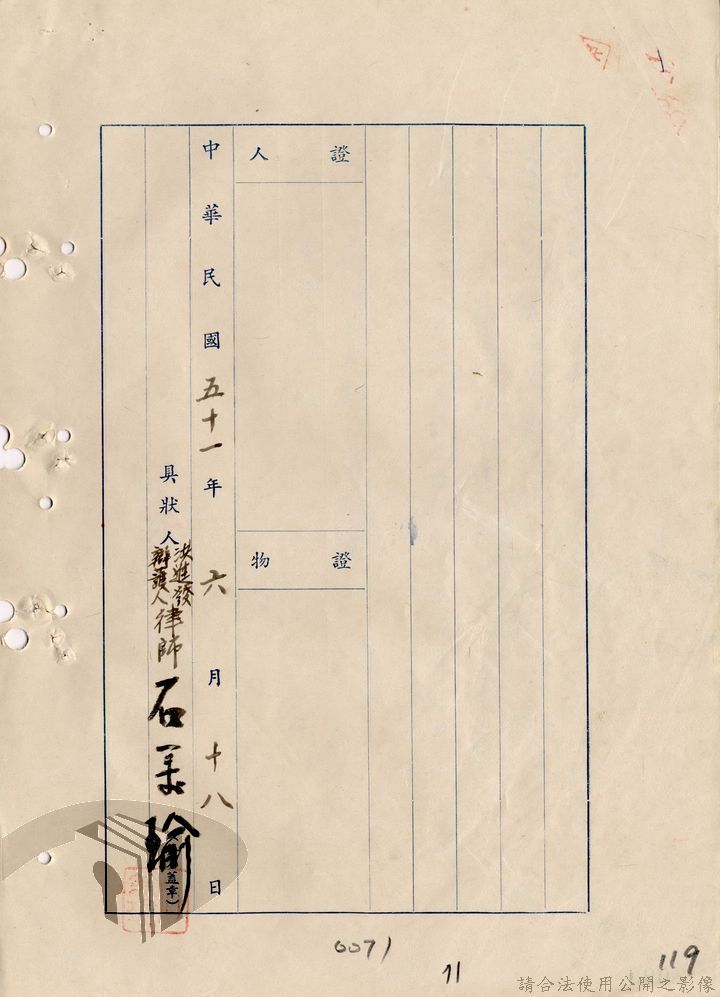 證人
證物
中華民國五十一年六月十八日
具狀人
洪進發
辯護人律師石美瑜
蓋章）
0071
71
119
請合法使用公開之影像